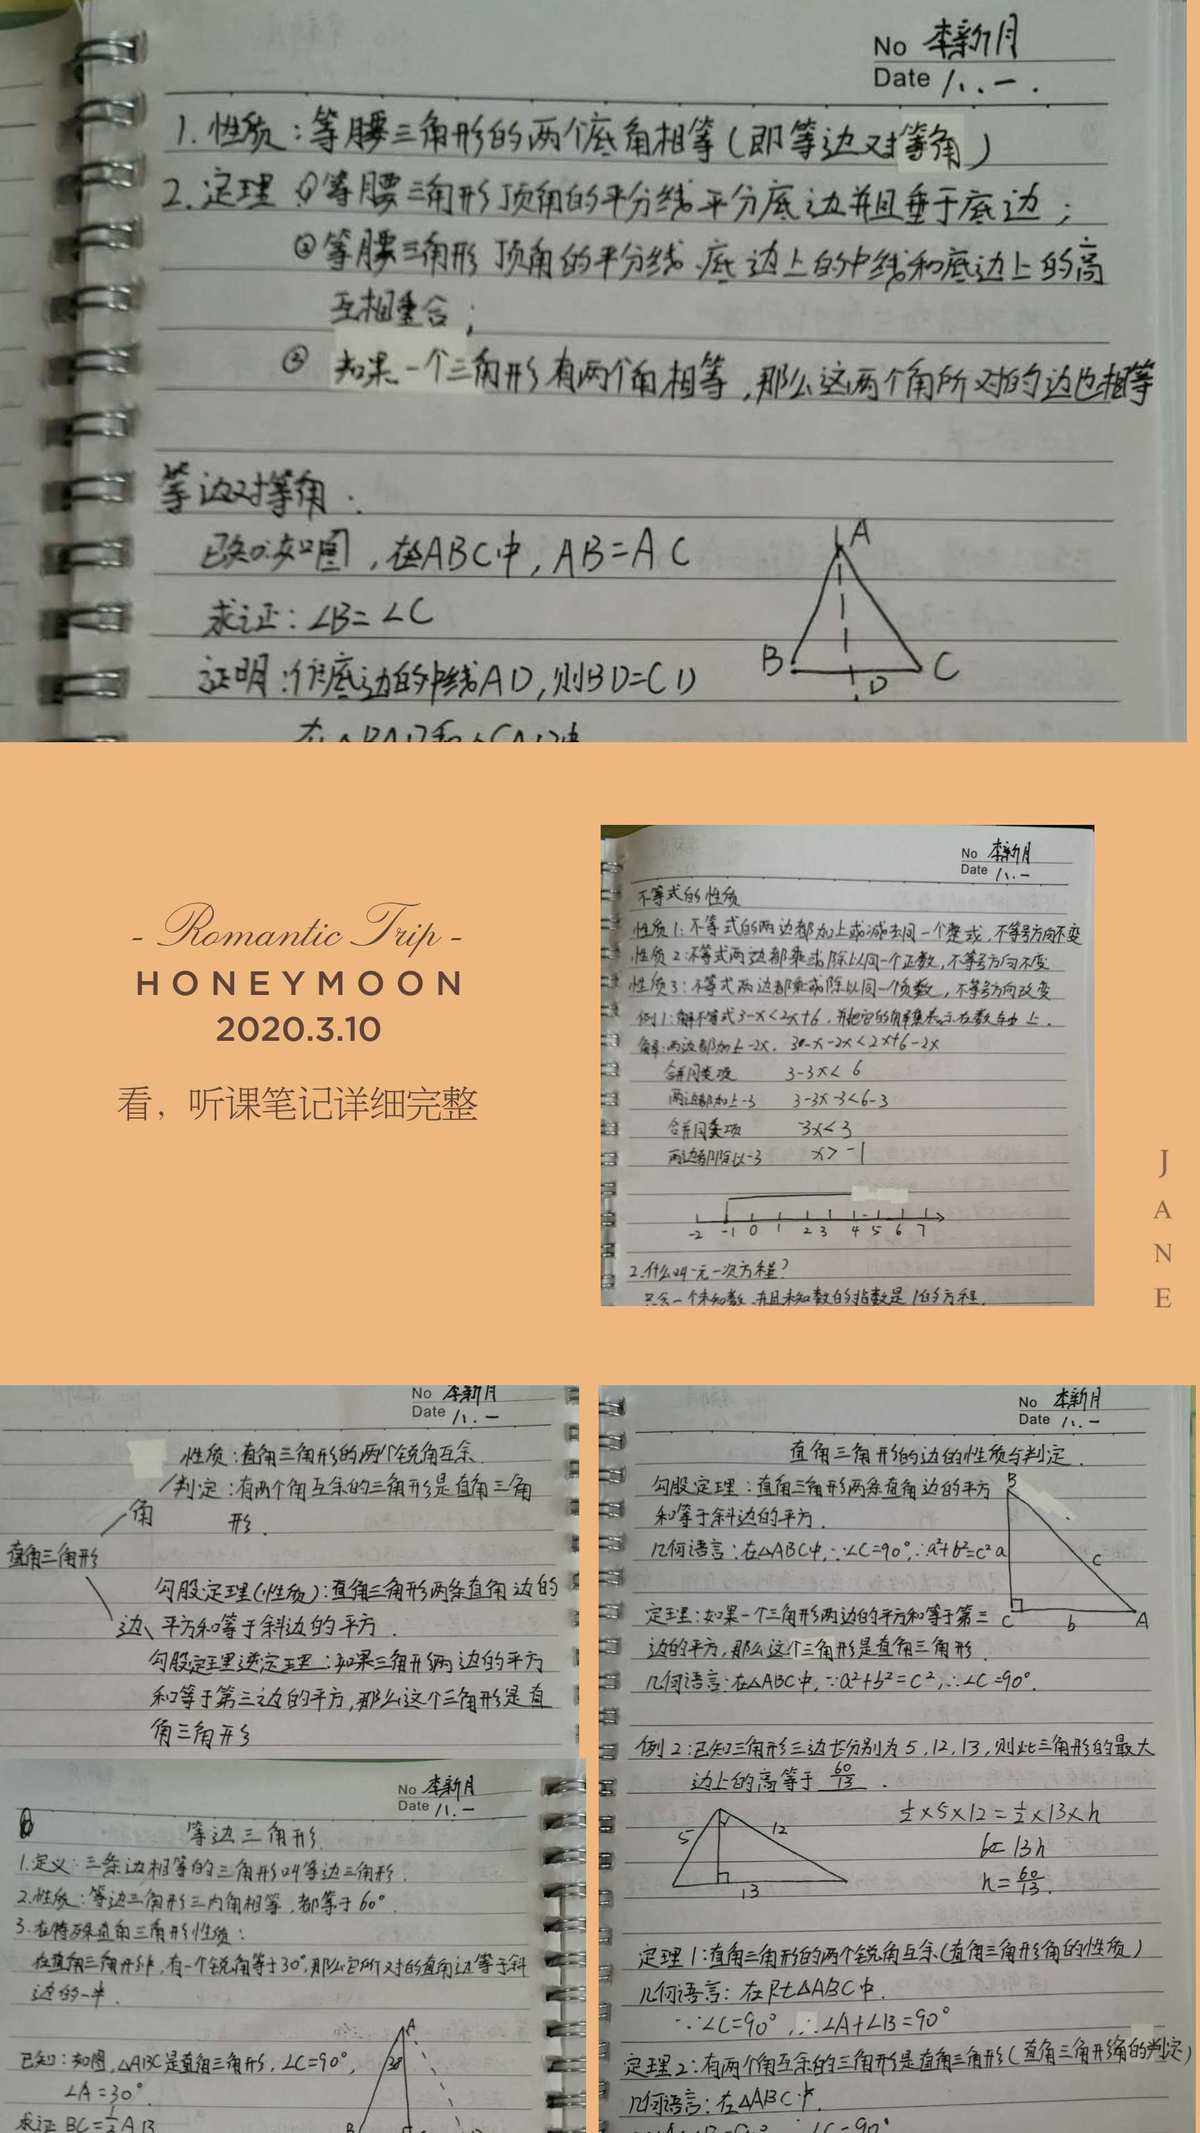 No 李新月
Date 八.一.
1.性质：等腰三角形的两个底角相等（即等边对等角）
2.定理 ①等腰三角形顶角的平分线平分底边并且垂于底边；
②等腰三角形 顶角的平分线、底边上的中线和底边上的高
互相重合；
③ 如果一个三角形有两个角相等，那么这两个角所对的边也相等
等边对等角：
已知：如图，在△ABC中，AB=AC
求证：∠B=∠C
证明：作底边的中线AD，则BD=CD
在△BAD和△CAD中
A
B
D
C
- Romantic Trip -
HONEYMOON
2020.3.10
看，听课笔记详细完整
JANE
No 李新月
Date 八.一
不等式的性质
性质1：不等式的两边都加上或减去同一个整式，不等号方向不变
性质2：不等式两边都乘或除以同一个正数，不等号方向不变
性质3：不等式两边都乘或除以同一个负数，不等号方向改变
例1：解不等式3-x<2x+6，并把它的解集表示在数轴上.
解：两边都加上-2x， 3-x-2x<2x+6-2x
合并同类项 3-3x<6
两边都加上-3 3-3x-3<6-3
合并同类项 -3x<3
两边都除以-3 x>-1
-2 -1 0 1 2 3 4 5 6 7
2.什么叫一元一次方程？
只含一个未知数，并且未知数的指数是1的方程.
No 李新月
Date 八.一
性质：直角三角形的两个锐角互余.
判定：有两个角互余的三角形是直角三角
形.
角
直角三角形
勾股定理(性质)：直角三角形两条直角边的
边、平方和等于斜边的平方.
勾股定理逆定理：如果三角形两边的平方
和等于第三边的平方，那么这个三角形是直
角三角形
No 李新月
Date 八.一
直角三角形的边的性质与判定.
勾股定理：直角三角形两条直角边的平方
和等于斜边的平方.
几何语言：在△ABC中，∵∠C=90°，∴a²+b²=c²
定理：如果一个三角形两边的平方和等于第三
边的平方，那么这个三角形是直角三角形.
几何语言：在△ABC中，∵a²+b²=c²，∴∠C=90°.
B
a
c
C
b
A
例2：已知三角形三边长分别为5，12，13，则此三角形的最大
边上的高等于 60/13 .
5
12
13
½×5×12=½×13×h
h=60/13.
定理1：直角三角形的两个锐角互余(直角三角形角的性质)
几何语言：在Rt△ABC中.
∵∠C=90°，∴∠A+∠B=90°
定理2：有两个角互余的三角形是直角三角形(直角三角形角的判定)
几何语言：在△ABC中.
No 李新月
Date 八.一
等边三角形.
1.定义：三条边相等的三角形叫等边三角形.
2.性质：等边三角形三内角相等，都等于60°.
3.在特殊直角三角形性质：
在直角三角形中，有一个锐角等于30°，那么它所对的直角边等于斜
边的一半.
已知：如图，△ABC是直角三角形，∠C=90°，
∠A=30°.
求证 BC=½AB
A
30